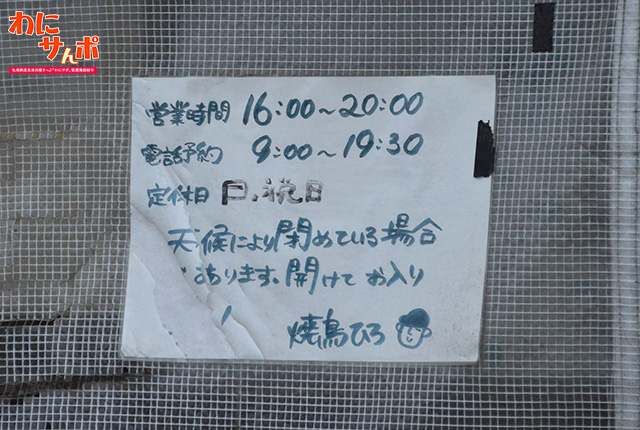 わに
サんポ
営業時間 16:00~20:00
電話予約 9:00~19:30
定休日 日、税日
天候により閉めている場合
あります。開けてお入り
焼鳥ひろ